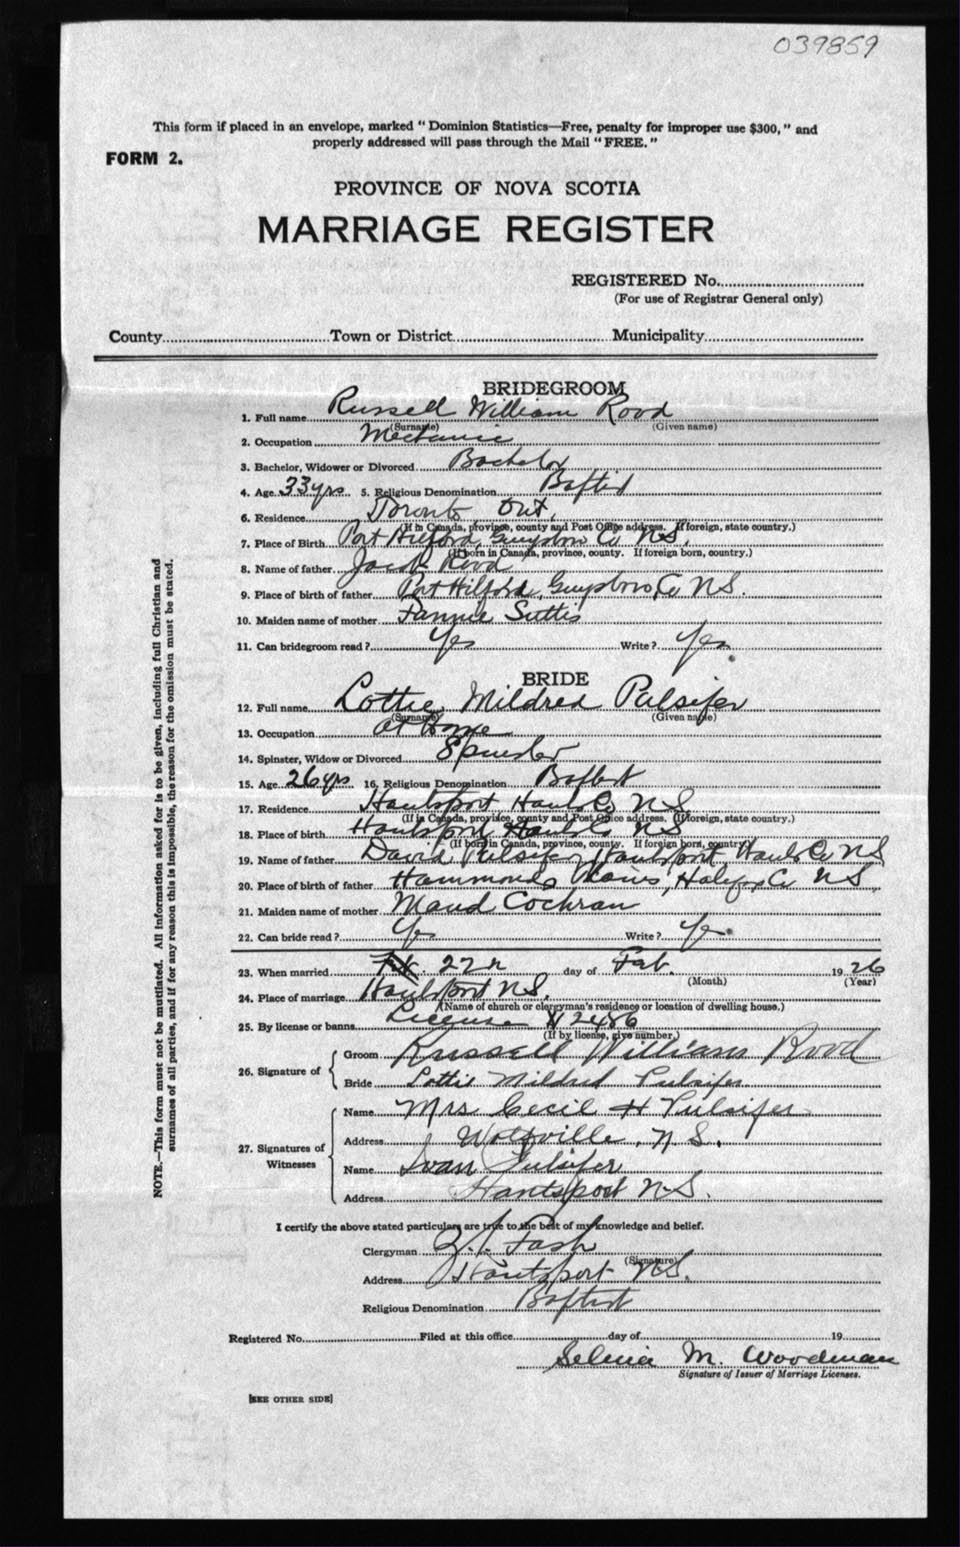 039859
This form if placed in an envelope, marked "Dominion Statistics—Free, penalty for improper use $300," and
properly addressed will pass through the Mail "FREE."
FORM 2.
PROVINCE OF NOVA SCOTIA
MARRIAGE REGISTER
REGISTERED No.
(For use of Registrar General only)
County Town or District Municipality
BRIDEGROOM
1. Full name Russell William Rood
(Surname) (Given name)
2. Occupation Mechanic
3. Bachelor, Widower or Divorced Bachelor
4. Age 33 yrs 5. Religious Denomination Baptist
6. Residence Toronto Ont.
(If in Canada, province, county and Post Office address. If foreign, state country.)
7. Place of Birth Port Hilford, Guysboro Co NS.
(If born in Canada, province, county. If foreign born, country.)
8. Name of father Jacob Rood
9. Place of birth of father Port Hilford, Guysboro, Co NS.
10. Maiden name of mother Fannie Suttis
11. Can bridegroom read? Yes Write? Yes.
BRIDE
12. Full name Lottie Mildred Pulsifer
(Surname) (Given name)
13. Occupation At Home
14. Spinster, Widow or Divorced Spinster
15. Age 26 yrs 16. Religious Denomination Baptist
17. Residence Hantsport Hants Co NS
(If in Canada, province, county and Post Office address. If foreign, state country.)
18. Place of birth Hantsport Hants Co NS
(If born in Canada, province, county. If foreign born, country)
19. Name of father David Pulsifer, Hantsport, Hants Co NS
20. Place of birth of father Hammonds Plains, Halifax Co NS,
21. Maiden name of mother Maud Cochran
22. Can bride read? Yes Write? Yes.
23. When married 22n day of Feb. 1926
(Month) (Year)
24. Place of marriage Hantsport NS.
(Name of church or clergyman's residence or location of dwelling house.)
25. By license or banns License 2486
(If by license, give number.)
26. Signature of
Groom Russell William Rood
Bride Lottie Mildred Pulsifer
27. Signatures of Witnesses
Name Mrs Cecil H Pulsifer
Address Wolfville, N.S.
Name Ivan Pulsifer
Address Hantsport N.S.
I certify the above stated particulars are true to the best of my knowledge and belief.
Clergyman Z. L. Fash
(Signature)
Address Hantsport NS.
Religious Denomination Baptist
Registered No. Filed at this office day of 19
Selina M. Woodman
Signature of Issuer of Marriage Licenses.
[SEE OTHER SIDE]
NOTE.—This form must not be mutilated. All information asked for is to be given, including full Christian and
surnames of all parties, and if for any reason this is impossible, the reason for the omission must be stated.